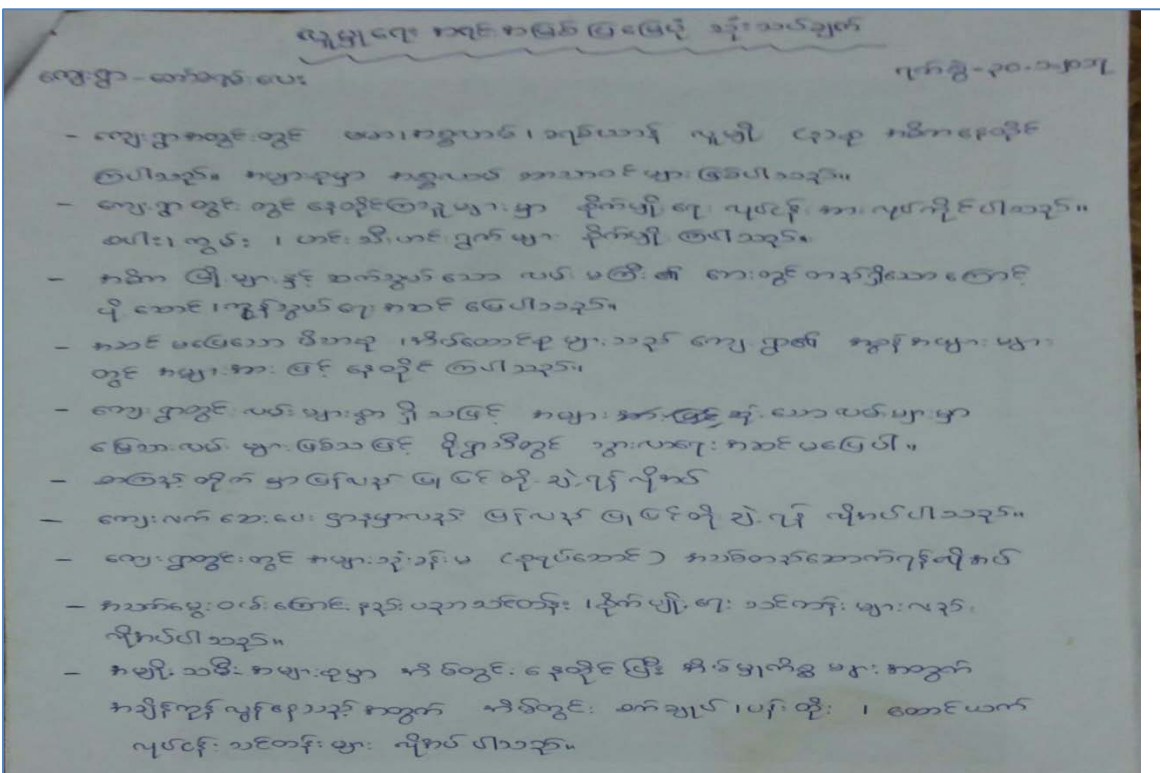 လူမှုရေး အရင်းအမြစ်ပြမြေပုံ သုံးသပ်ချက်
ကျေးရွာ - တော်တည်လေး ရက်စွဲ - ၃၀.၁.၂၀၁၇
- ကျေးရွာအတွင်းတွင် ဗမာ၊ အစ္စလာမ်၊ ခရစ်ယာန် လူမျိုး (၃) စု အဓိကနေထိုင်
ကြပါသည်။ အများစုမှာ အစ္စလာမ် ဘာသာဝင် များ ဖြစ်ပါသည်။
- ကျေးရွာ တွင်း တွင် နေထိုင်ကြသူများ မှာ စိုက်ပျိုးရေး လုပ်ငန်း အား လုပ်ကိုင်ပါသည်။
စပါး၊ ကွမ်း ၊ ဟင်းသီးဟင်းရွက် များ စိုက်ပျိုး ကြပါသည်။
- အဓိက မြို့များ နှင့် ဆက်သွယ် သော လမ်းမကြီး ၏ ဘေးတွင် တည်ရှိသောကြောင့်
ပို့ဆောင် ၊ ကူးသွယ်ရေး အဆင် ပြေပါသည်။
- အဆင် မပြေသော မိသားစု ၊ အိမ်ထောင်စု များသည် ကျေးရွာ၏ အစွန်အဖျား များ
တွင် အများအား ဖြင့် နေထိုင် ကြပါသည်။
- ကျေးရွာတွင် လမ်းများစွာ ရှိသဖြင့် အများ အားဖြင့် ဆုံးသော လမ်းများမှာ
မြေသားလမ်း များ ဖြစ်သဖြင့် မိုးရွာသီတွင် သွားလာရေး အဆင် မပြေပါ။
- စာကြည့်တိုက် မှာ ပြန်လည် ပြုပြင် တိုးချဲ့ရန် လိုအပ်
- ကျေးလက် ဆေးပေး ဌာနမှာလည်း ပြန်လည် ပြုပြင်တိုးချဲ့ရန် လိုအပ်ပါသည်။
- ကျေးရွာတွင်းတွင် အများသုံးခန်းမ (စုရပ်ဆောင်) အသစ်တည်ဆောက်ရန်လိုအပ်
- အသက်မွေးဝမ်းကြောင်း နည်းပညာသင်တန်း ၊ စိုက်ပျိုးရေး သင်တန်း များလည်း
လိုအပ်ပါသည်။
- အမျိုးသမီး အများစုမှာ အိမ်တွင်း နေထိုင် ပြီး အိမ်မှုကိစ္စ များ အတွက်
အချိန်ကုန် လွန်နေသည့် အတွက် အိမ်တွင်း စက်ချုပ် ၊ ပန်းထိုး ၊ ထောင်ယက်
လုပ်ငန်း သင်တန်း များ လိုအပ် ပါသည်။